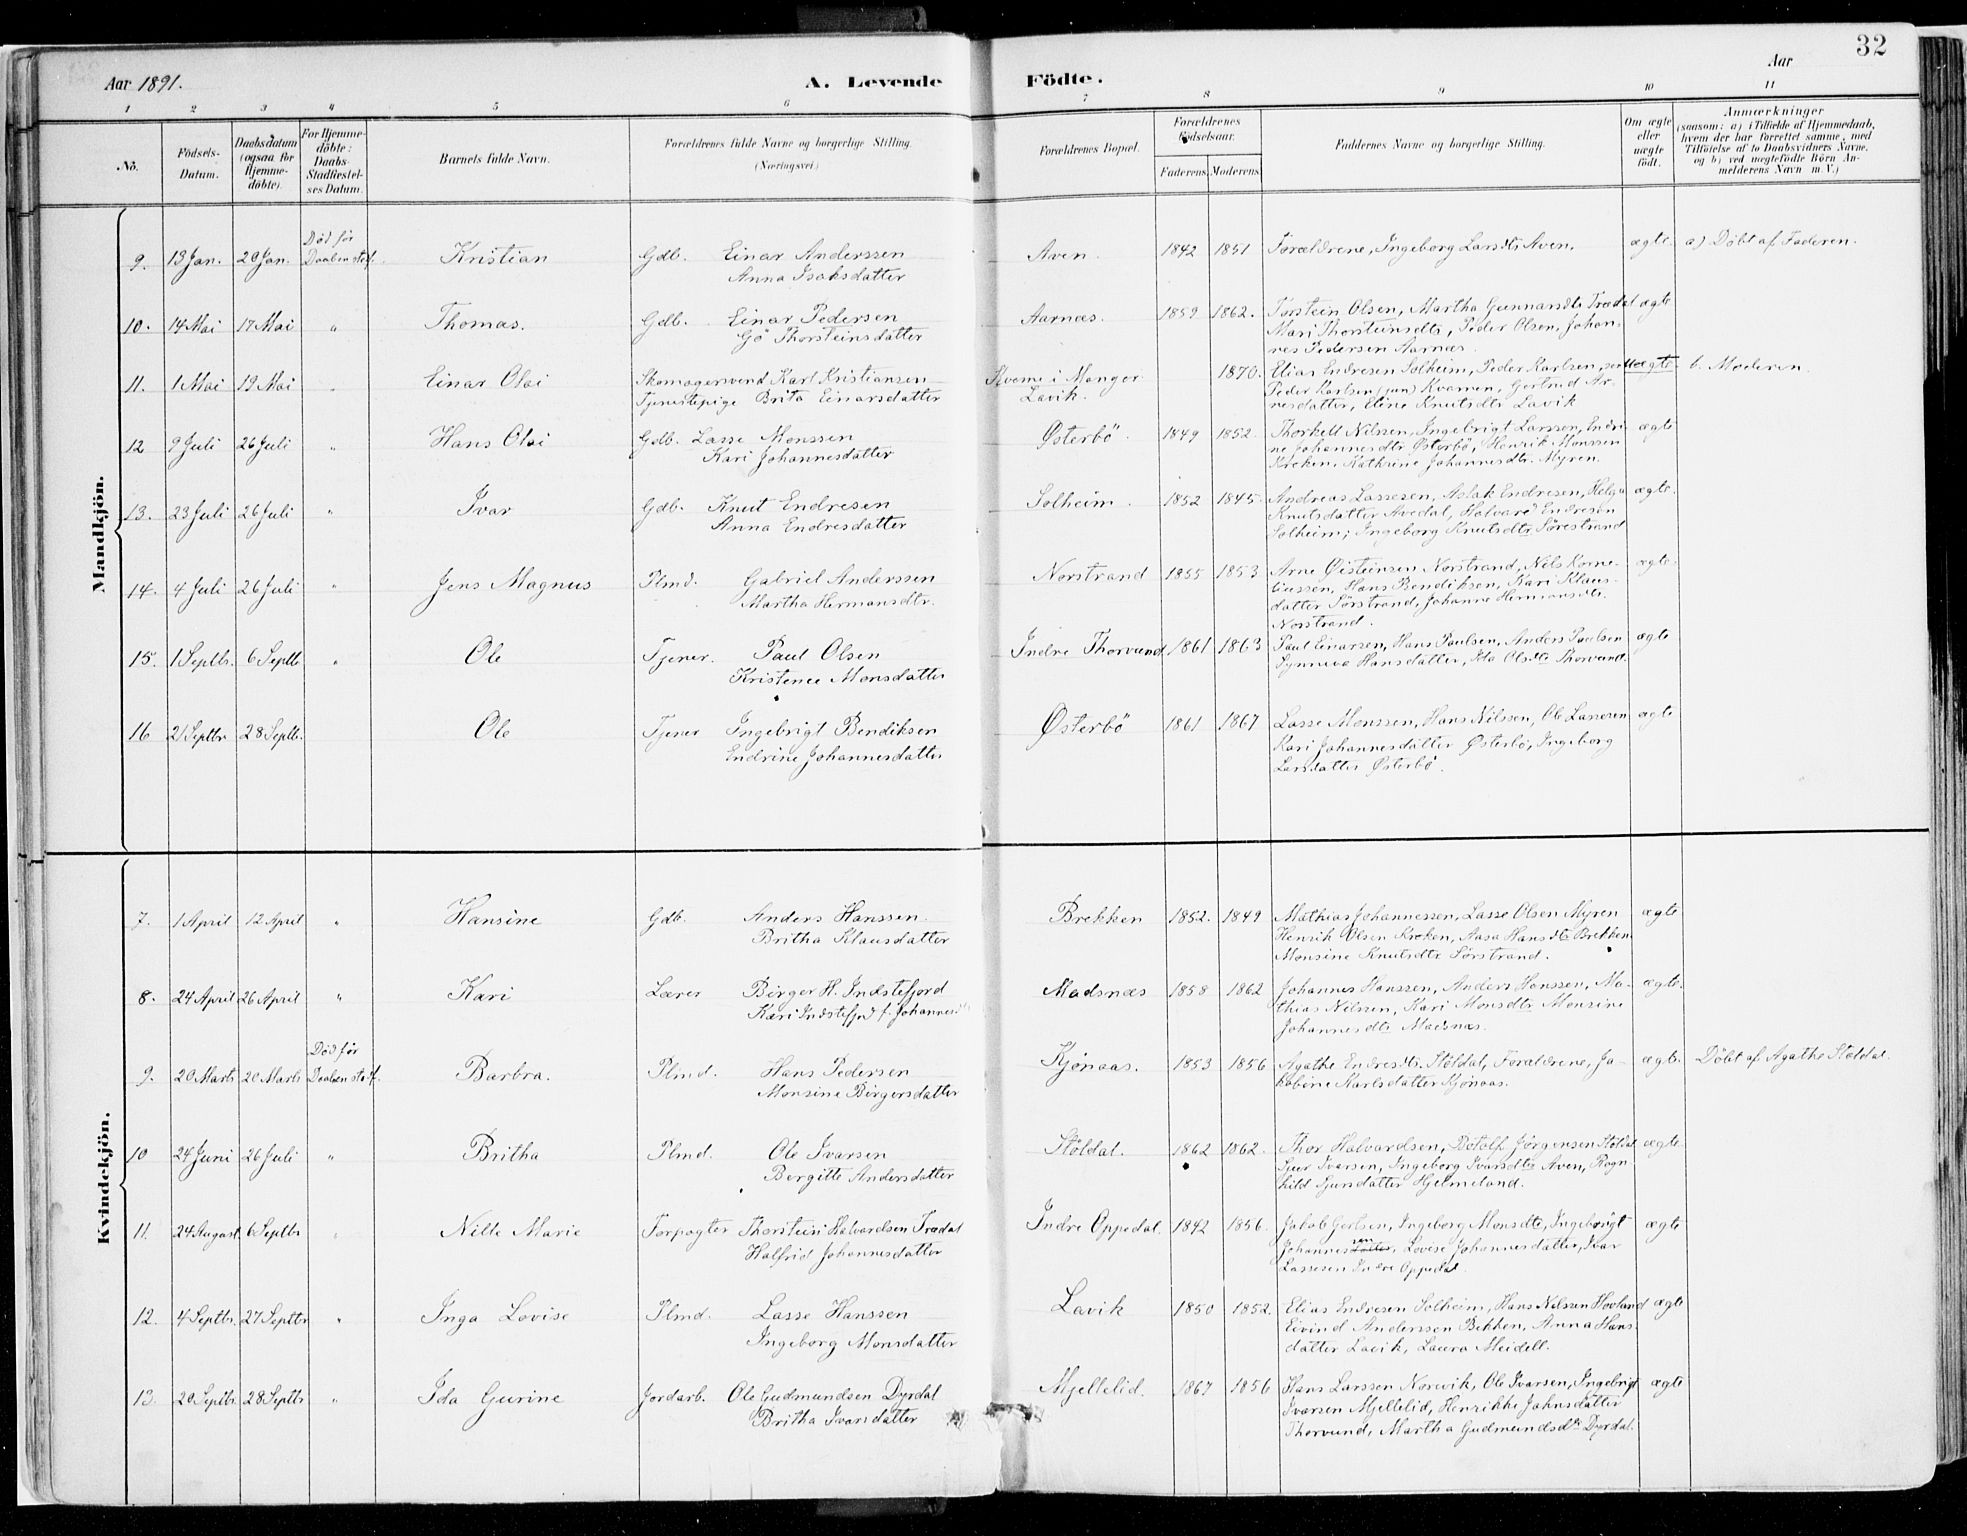 32
Aar 1891. A. Levende Födte. Aar
1 2 3 4 5 6 7 8 9 10 11
No.
Födsels-Datum.
Daabsdatum (ogsaa for Hjemme-döbte).
For Hjemme-döbte: Daabs-Stadfæstel-ses Datum.
Barnets fulde Navn.
Forældrenes fulde Navne og borgerlige Stilling.
(Næringsvei)
Forældrenes Bopæl.
Forældrenes Födselsaar.
Faderens. Moderens.
Faddernes Navne og borgerlige Stilling.
Om ægte eller uægte födt.
Anmærkninger
(saasom: a) i Tilfælde af Hjemmedaab, hvem der har forrettet samme, med Tilföielse af to Daabsvidners Navne, og b) ved uægtefödte Börn An-melderens Navn m. V.)
Mandkjön.
9. 13 Jan. 20 Jan. Död för Daaben stf. Kristian Gdb. Einar Anderssen Aven. 1842 1851 Forældrene, Ingeborg Larsdtr Aven. ægte a) Döbt af Faderen.
Anna Isaksdatter
10. 14 Mai 17 Mai " Thomas. Gdb. Einar Pedersen Aarnæs. 1859 1862. Torstein Olsen, Martha Gunnarsdtr Trædal ægte
Gö Thorsteinsdatter Mari Thorsteinsdtr, Peder Olsen, Johan-
nes Pedersen Aarnæs.
11. 1 Mai 19 Mai " Einar Olai Skomagersvend Karl Kristiansen Kverne i Manger 1870. Elias Endresen Solheim, Peder Karlsen, sen uægte b. Moderen.
Tjenestepige Brita Einarsdatter Lavik. Peder Karlsen (jun) Kvamen, Gertrud Ar-
nesdatter, Eline Knutsdtr Lavik
12 9 Juli 26 Juli " Hans Olai Gdb. Lasse Monssen Østerbö. 1849 1852. Thorkell Nilssen, Ingebrigt Larssen, Endri- ægte
Kari Johannesdatter ne Johannesdtr Østerbö, Henrik Monssen
Kreken, Kathrine Johannesdtr. Myren.
13. 23 Juli 26 Juli " Ivar Gdb. Knut Endresen Solheim. 1852 1845. Andreas Lassesen, Aslak Endresen, Helga ægte
Anna Endresdatter Knutsdatter Avedal, Halvard Endresen
Solheim; Ingeborg Knutsdtr Sörestrand
14. 4 Juli 26 Juli " Jens Magnus Plmd. Gabriel Anderssen Norstrand 1855 1853 Arne Øisteinsen Norstrand, Nils Korne- ægte
Martha Hermansdtr. liussen, Hans Bendiksen, Kari Klaus-
datter Sörstrand, Johanne Hermansdtr.
Norstrand.
15. 1 Septbr. 6 Septb " Ole Tjener. Paul Olsen Indre Thorvund 1861 1863 Paul Einarsen, Hans Paulsen, Anders Paulsen ægte
Kristense Monsdatter Synneva Hansdatter, Ida Olsdtr Thorvund.
16 21 Septbr 28 Septb. Ole Tjener Ingebrigt Bendiksen Østerbö 1861 1867 Lasse Monssen, Hans Nilssen, Ole Lassesen ægte
Endrine Johannesdatter Kari Johannesdatter Østerbö, Ingeborg
Larsdatter Østerbö.
Kvindekjön.
7. 1 April 12 April " Hansine Gdb. Anders Hanssen. Brekken 1852. 1849 Mathias Johannessen, Lasse Olsen Myren ægte
Britha Klausdatter Henrik Olsen Kreken, Aasa Hansdtr Brekken
Monsine Knutsdtr Sörstrand.
8. 24 April 26 April " Kari Lærer Birger H. Indstefjord Madsnæs 1858 1862 Johannes Hanssen, Anders Hanssen, Ma- ægte.
Kari Indstefjord f. Johannesdtr thias Nilssen, Kari Monsdtr Monsine
Johannesdtr Madsnæs.
9. 20 Marts 20 Marts Död för Daaben stf. Barbra. Plmd. Hans Pedersen Kjönaas. 1853 1856 Agathe Endresdtr. Stöldal, Forældrene, Ja- ægte. Döbt af Agathe Støldal.
Monsine Birgersdatter kobine Karlsdatter Kjönaas.
10 24 Juni 26 Juli " Britha Plmd. Ole Ivarsen Stöldal. 1862 1862. Thor Halvardsen, Botolf Jörgensen Stöldal ægte
Bergitte Andersdatter Sjur Ivarsen, Ingeborg Ivarsdtr Aven, Ragn-
hild Sjursdatter Hjelmeland.
11. 24 August 6 Septbr " Nille Marie Forpagter Thorstein Halvardsen Trædal Indre Oppedal. 1842 1856. Jakob Gertsen, Ingeborg Monsdtr, Ingebrigt ægte
Halfrid Johannesdatter Johannessen datter, Lovise Johannesdatter, Ivar
Lassesen Indre Oppedal.
12. 4 Septbr. 27 Septbr " Inga Lovise Plmd. Lasse Hanssen Lavik 1850 1852. Elias Endresen Solheim, Hans Nilssen Hovland ægte
Ingeborg Monsdatter Eivind Anderssen Bekken, Anna Hans-
datter Lavik, Laura Meidell.
13. 20 Septbr. 28 Septb " Ida Gurine Jordarb. Ole Gudmundsen Dyrdal Mjellelid. 1867 1856 Hans Larssen Norevik, Ole Ivarsen, Ingebrigt ægte
Britha Ivarsdatter Ivarsen Mjellelid, Henrikke Johnsdatter
Thorvund, Martha Gudmundsdtr Dyrdal.